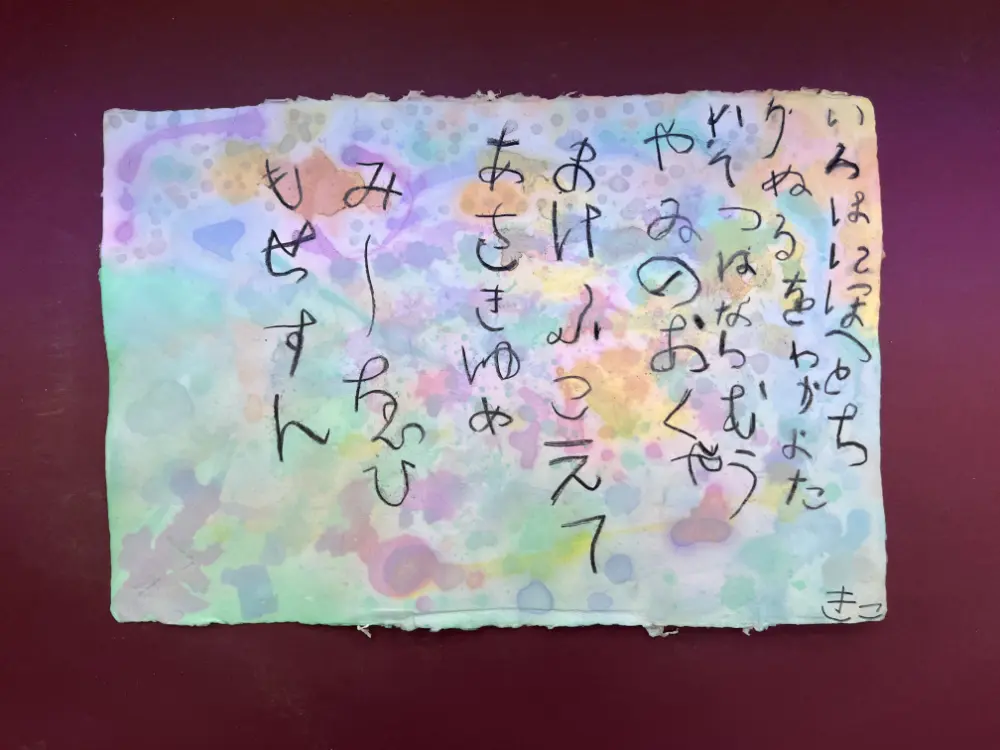 いろはにほへとち
りぬるをわかよた
れそつねならむう
やゐのおくや
まけふこえて
あさきゆめ
みしゑひ
もせすん
きこ